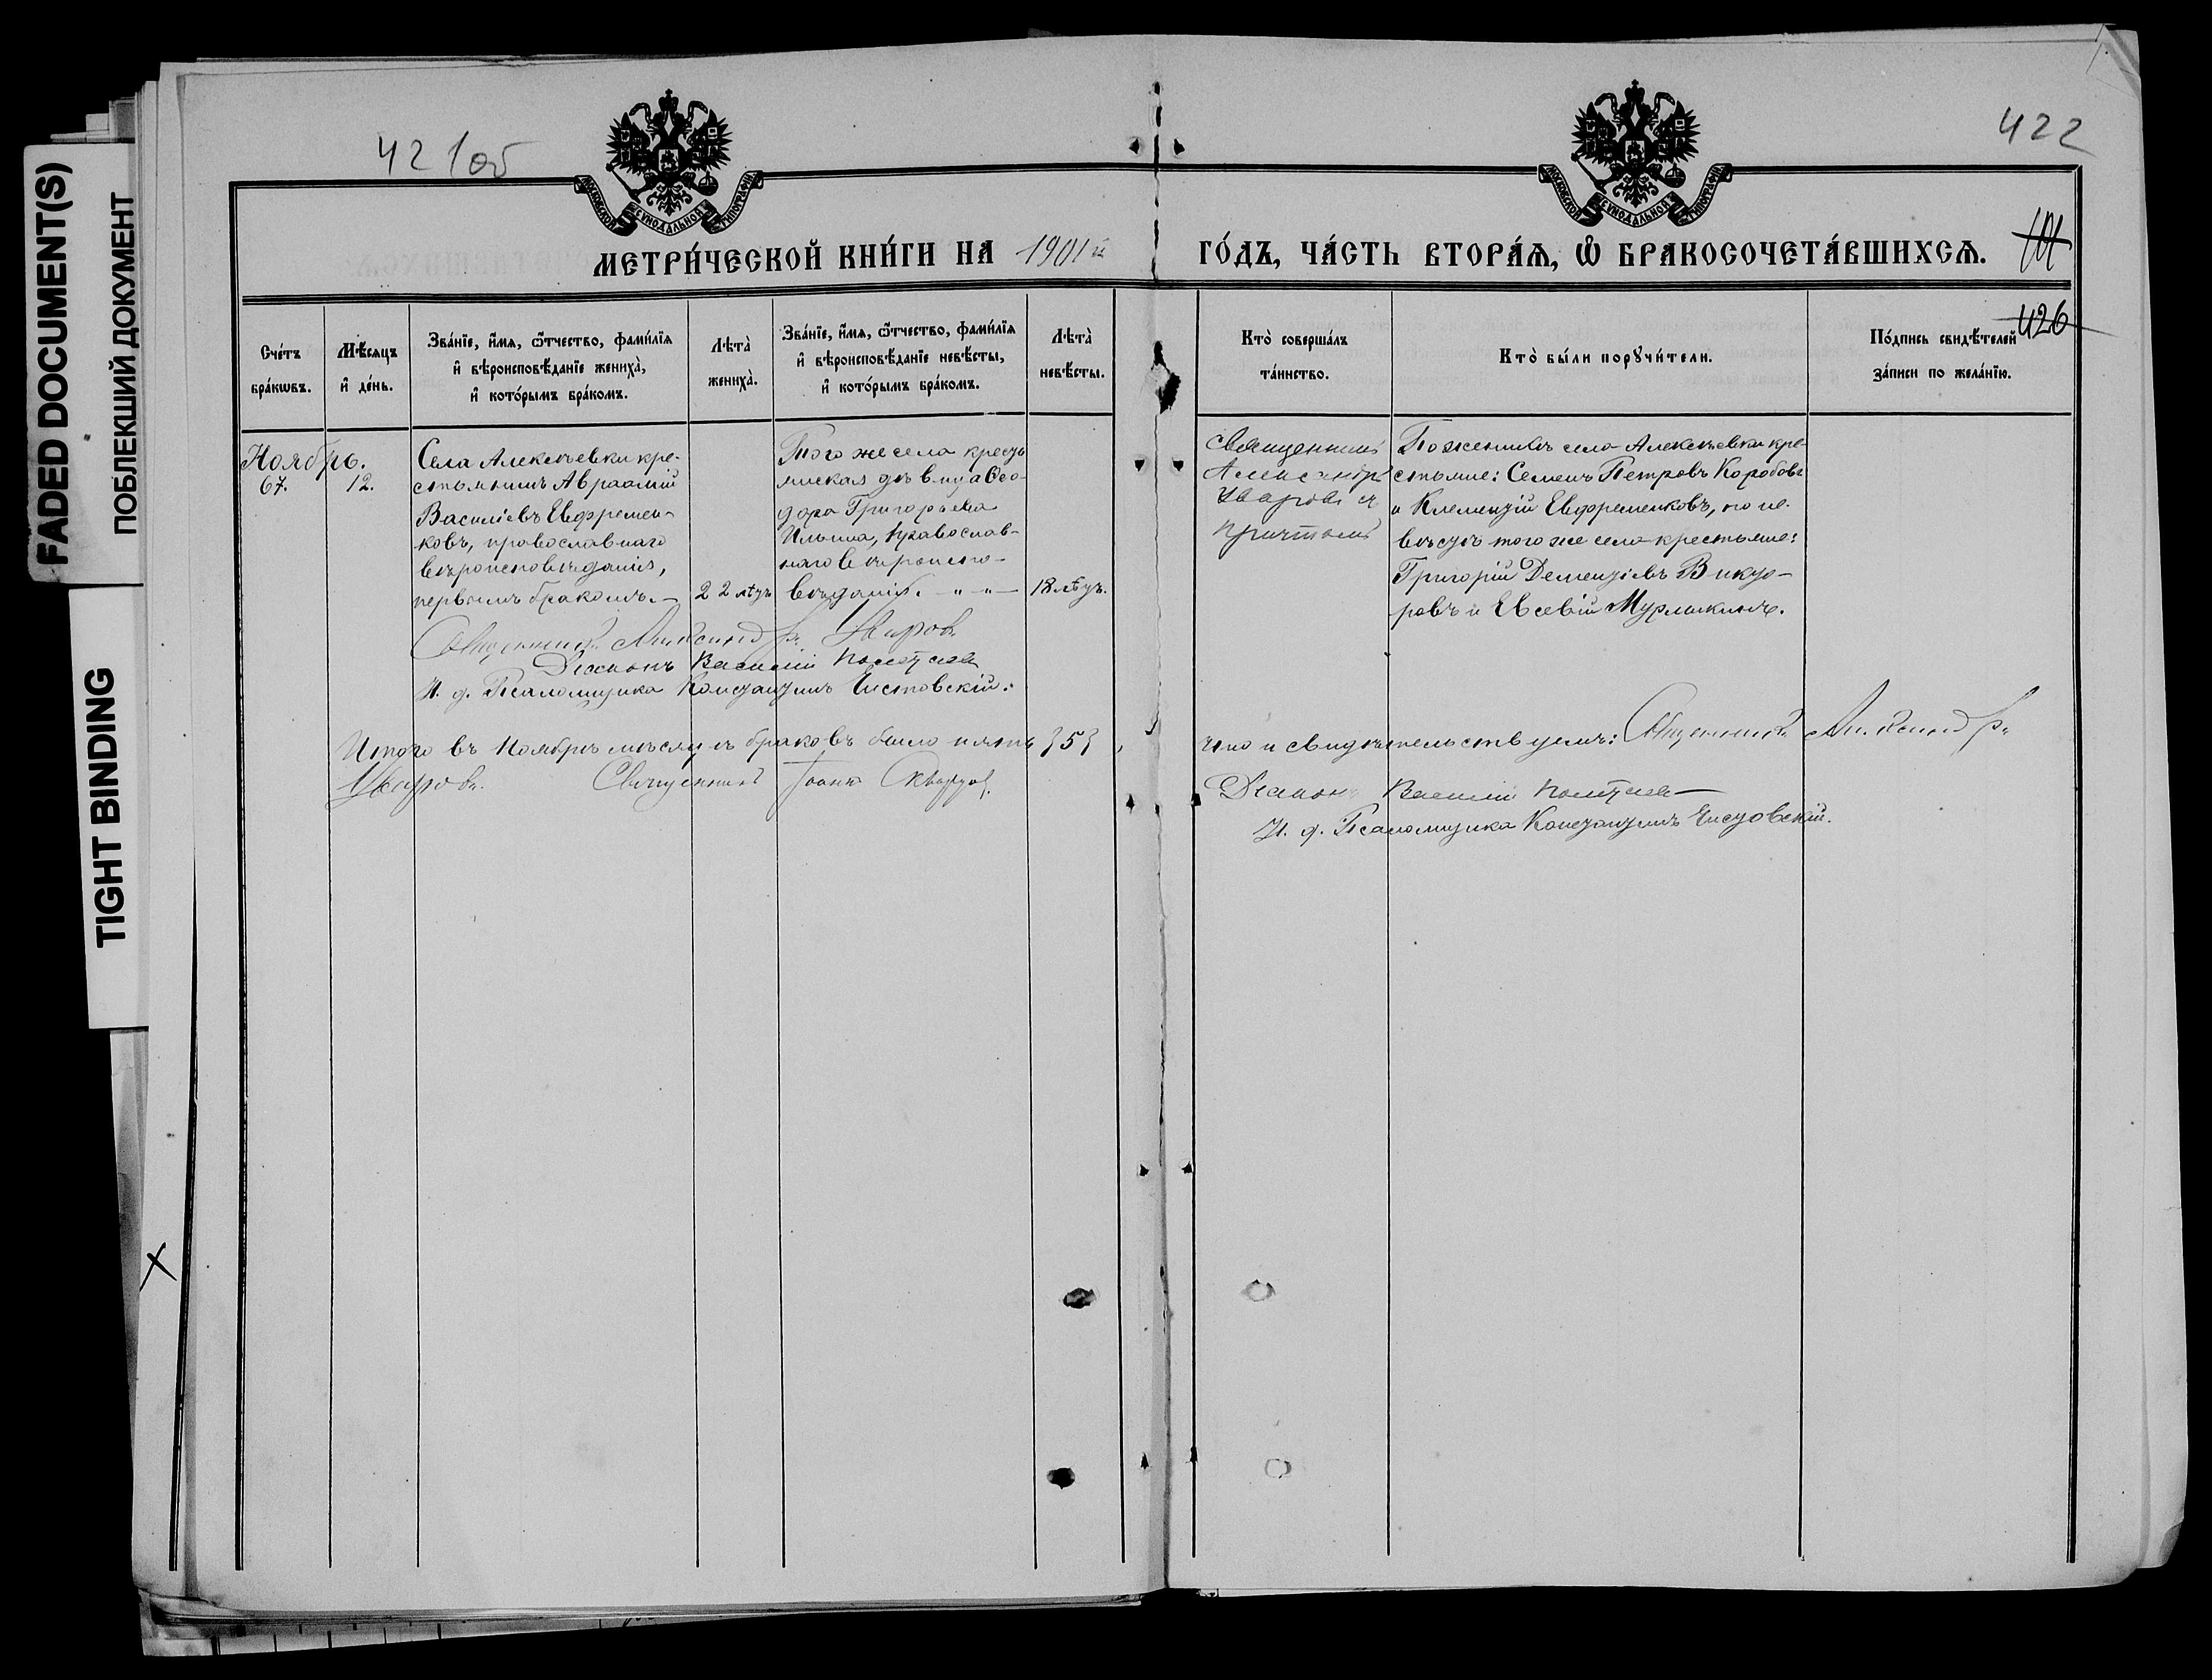 FADED DOCUMENT(S)
ПОБЛЕКШИЙ ДОКУМЕНТ
TIGHT BINDING
421об
422
МОСКОВСКОЙ СѴНОДАЛЬНОЙ ТИПОГРАФІИ
МОСКОВСКОЙ СѴНОДАЛЬНОЙ ТИПОГРАФІИ
МЕТРИ́ЧЕСКОЙ КНИ́ГИ НА 1901й
ГО́ДЪ, ЧА́СТЬ ВТОРА́Ѧ, Ѽ БРАКОСОЧЕТА́ВШИХСѦ.
101
426
Сче́тъ
бра́кѡвъ.
Мѣ́сяцъ
и҆ де́нь.
Зва́нїе, и҆́мѧ, ѻ҆́тчество, фами́лїѧ
и҆ вѣроисповѣ́данїе жениха̀,
и҆ кото́рымъ бра́комъ.
Лѣта̀
жениха̀.
Зва́нїе, и҆́мѧ, ѻ҆́тчество, фами́лїѧ
и҆ вѣроисповѣ́данїе невѣ́сты,
и҆ кото́рымъ бра́комъ.
Лѣта̀
невѣ́сты.
Кто̀ соверша́лъ
та́инство.
Кто̀ бы́ли порꙋчи́тели.
По́дпись свидѣ́телей
за́писи по жела́нїю.
Ноябрь.
67.
12.
Села Алексѣевки кре-
стьянинъ Авраамій
Василіевъ Евфремен-
ковъ, православнаго
вѣроисповѣданія,
первымъ бракомъ.—
22 лѣтъ
Того же села кресть
янская дѣвица Ѳео-
дора Григорьева
Ильина, православ-
наго вѣроиспо-
вѣданія. - „ - „ —
18 лѣтъ.
Священникъ
Александръ
Уваровъ съ
причтомъ
По женихѣ села Алексѣевки кре-
стьяне: Семенъ Петровъ Коробовъ
и Клементій Евфременковъ, по не-
вѣстѣ того же села крестьяне:
Григорій Дементіевъ Викто-
ровъ и Евсевій Мурлыкинъ.
Священникъ Александръ Уваровъ
Діаконъ Василій
И. д. Псаломщика Константинъ Чистовскій.
Итого въ Ноябрѣ мѣсяцѣ браковъ было пять {5}
Что и свидѣтельствуемъ: Священникъ Александръ
Уваровъ. Священникъ Іоаннъ
Діаконъ Василій
И. д. Псаломщика Константинъ Чистовскій.